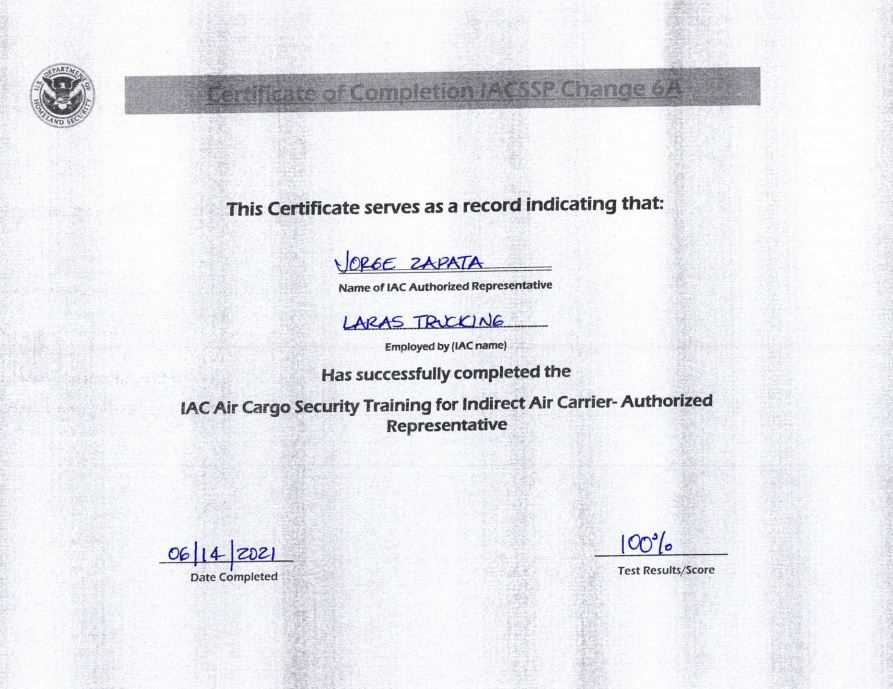 U.S. DEPARTMENT OF HOMELAND SECURITY
Certificate of Completion IACSSP Change 6A
This Certificate serves as a record indicating that:
JORGE ZAPATA
Name of IAC Authorized Representative
LARAS TRUCKING
Employed by (IAC name)
Has successfully completed the
IAC Air Cargo Security Training for Indirect Air Carrier- Authorized
Representative
06/14/2021
Date Completed
100%
Test Results/Score